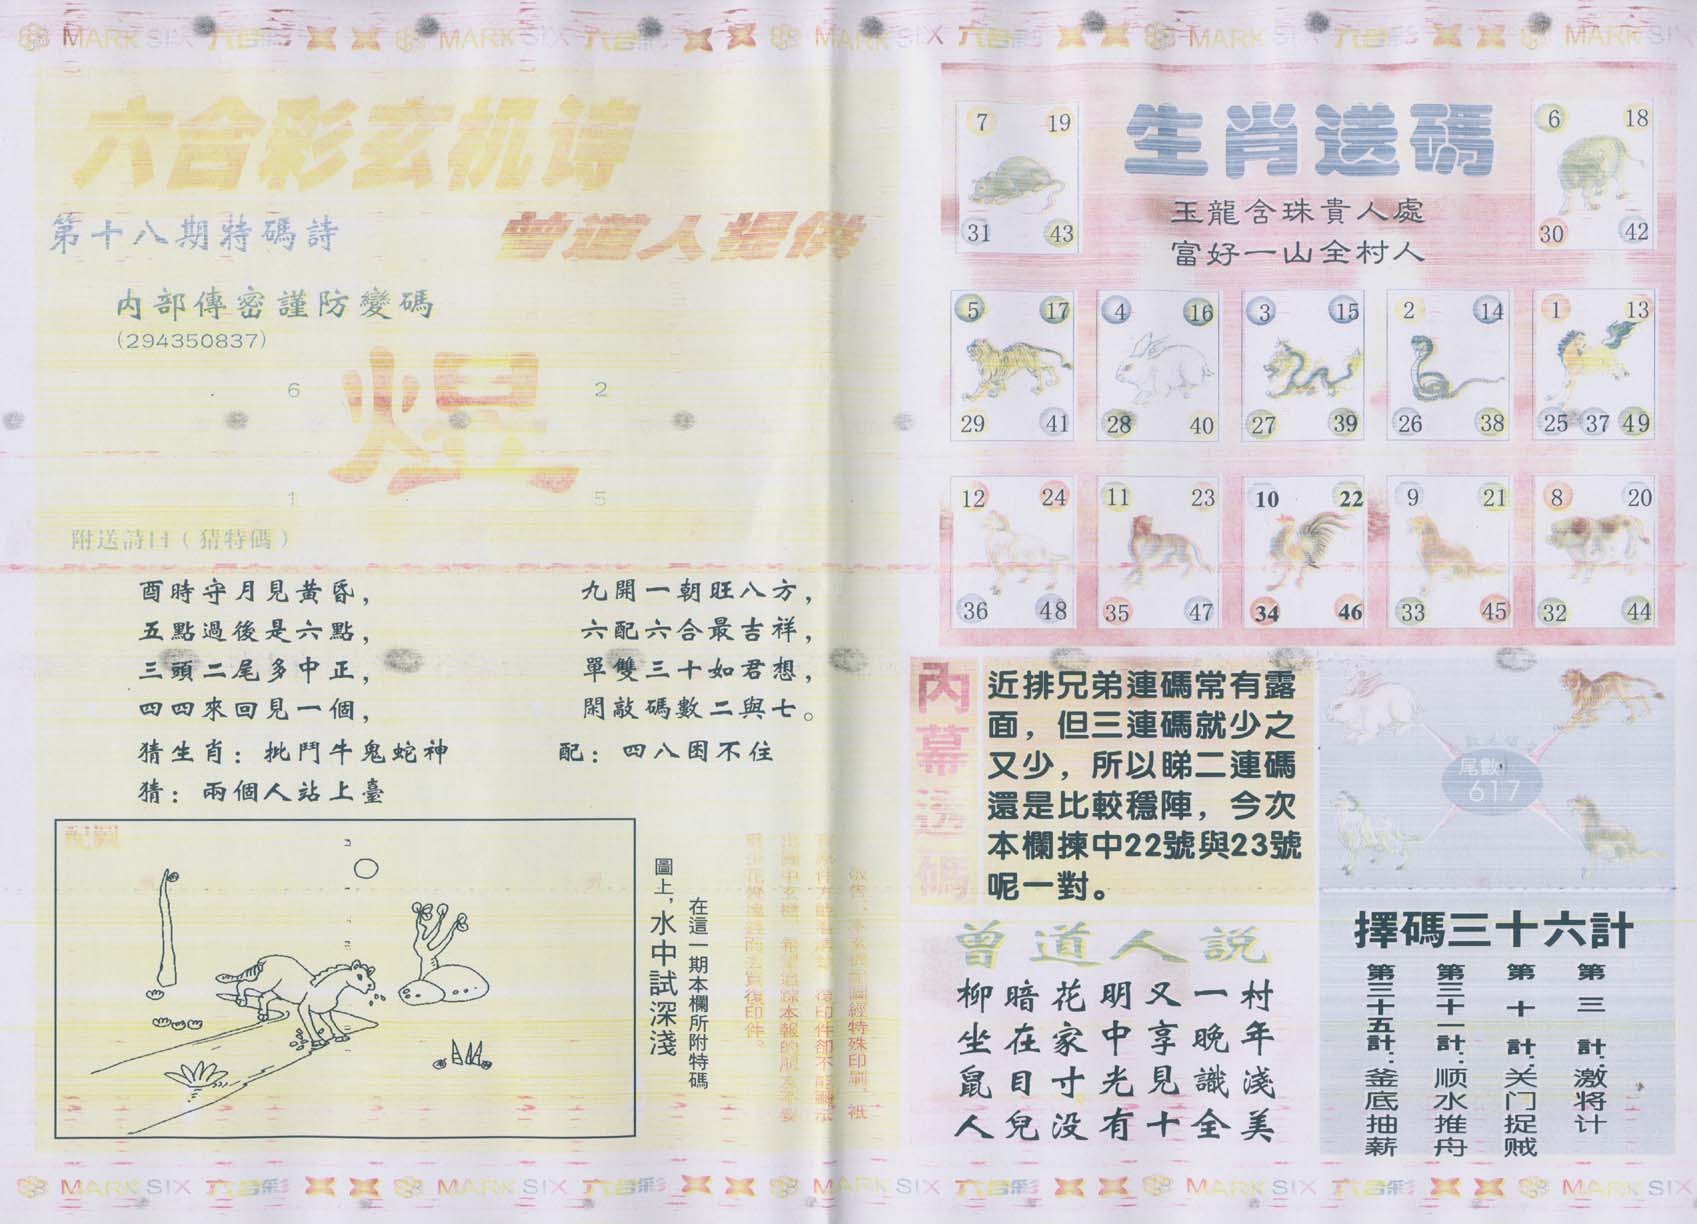 MARK SIX 六合彩 MARK SIX 六合彩 MARK SIX 六合彩 MARK SIX 六合彩 MARK SIX
六合彩玄机诗
第十八期特碼詩
曾道人提供
内部傳密謹防變碼
(294350837)
6 2
煜
1 5
附送詩(猜特碼)
酉時守月見黃昏，
五點過後是六點，
三頭二尾多中正，
四四來回見一個，
九開一朝旺八方，
六配六合最吉祥，
單雙三十如君想，
開敲碼數二與七。
猜生肖：批鬥牛鬼蛇神
配：四八困不住
猜：兩個人站上臺
配圖
在這一期本欄所附特碼
圖上，水中試深淺
生肖送碼
玉龍含珠貴人處
富好一山全村人
7 19
31 43
6 18
30 42
5 17
29 41
4 16
28 40
3 15
27 39
2 14
26 38
1 13
25 37 49
12 24
36 48
11 23
35 47
10 22
34 46
9 21
33 45
8 20
32 44
內幕送碼
近排兄弟連碼常有露
面，但三連碼就少之
又少，所以睇二連碼
還是比較穩陣，今次
本欄揀中22號與23號
呢一對。
尾數
617
曾道人説
柳暗花明又一村
坐在家中享晚年
鼠目寸光見識淺
人兒没有十全美
擇碼三十六計
第三計：激将计
第十計：关门捉贼
第三十一計：顺水推舟
第三十五計：釜底抽薪
MARK SIX 六合彩 MARK SIX 六合彩 MARK SIX 六合彩 MARK SIX 六合彩 MARK SIX